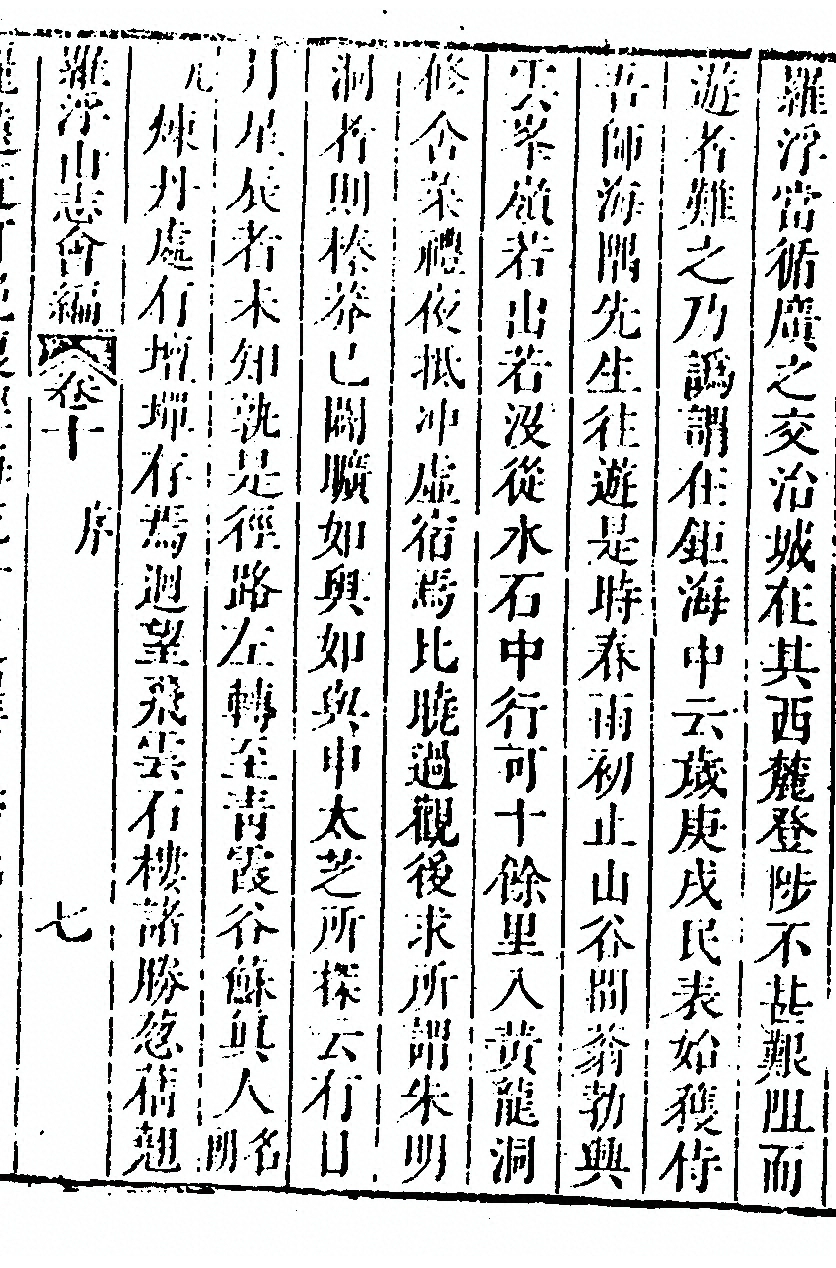 羅浮當循廣之交治城在其西麓登陟不甚艱阻而
遊者難之乃譌謂在鉅海中云歲庚戌民表始獲侍
吾師海隅先生往遊是時春雨初止山谷間蓊勃興
雲峯嶺若出若沒從水石中行可十餘里入黃龍洞
修舍菜禮夜抵冲虛宿焉比曉過觀後求所謂朱明
洞者則榛莽已闢曠如輿如與申太芝所探云有日
月星辰者未知孰是徑路左轉至青霞谷蘇眞人名朗
凡煉丹處有壇墠存焉迴望飛雲石樓諸勝忽舊翹
羅浮山志會編 卷十 序 七